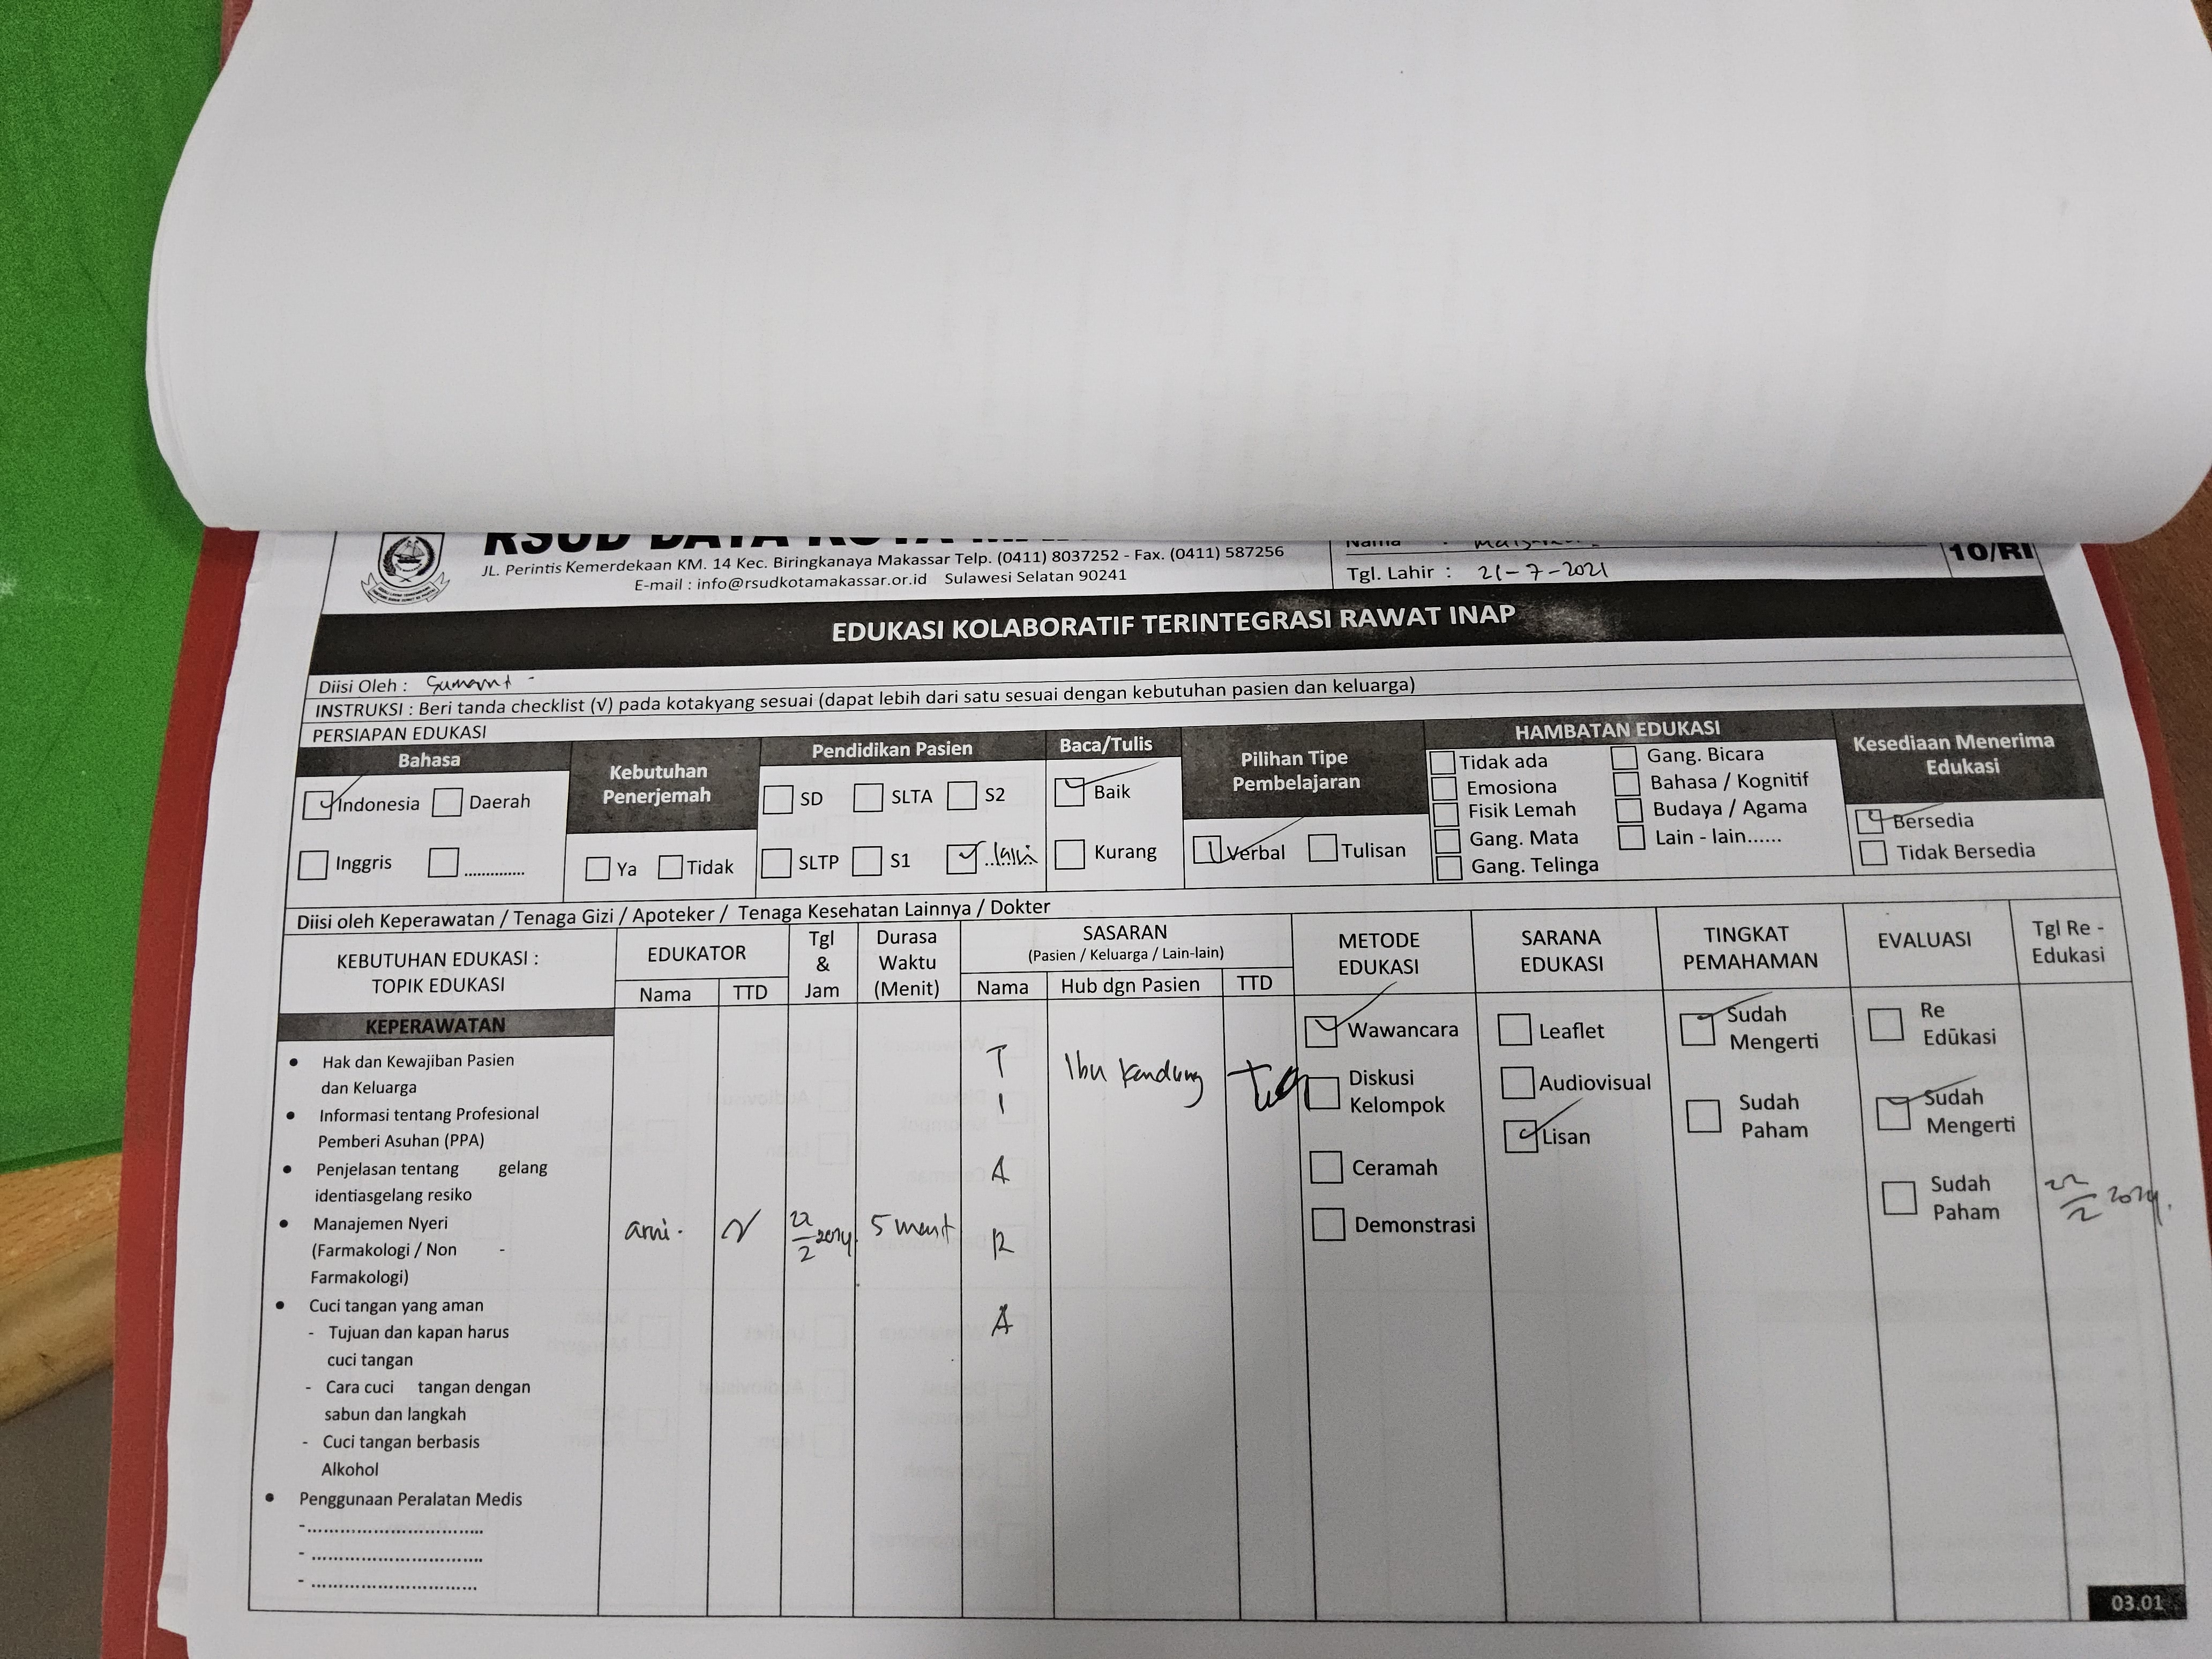 RSUD DAYA KOTA
JL. Perintis Kemerdekaan KM. 14 Kec. Biringkanaya Makassar Telp. (0411) 8037252 - Fax. (0411) 587256
E-mail : info@rsudkotamakassar.or.id Sulawesi Selatan 90241
Nama :
Tgl. Lahir : 21-7-2021
10/RI
EDUKASI KOLABORATIF TERINTEGRASI RAWAT INAP
Diisi Oleh :
INSTRUKSI : Beri tanda checklist (√) pada kotakyang sesuai (dapat lebih dari satu sesuai dengan kebutuhan pasien dan keluarga)
PERSIAPAN EDUKASI
Bahasa
Indonesia Daerah
Inggris ..............
Kebutuhan
Penerjemah
Ya Tidak
Pendidikan Pasien
SD SLTA S2
SLTP S1 ..lain
Baca/Tulis
Baik
Kurang
Pilihan Tipe
Pembelajaran
Verbal Tulisan
HAMBATAN EDUKASI
Tidak ada Gang. Bicara
Emosiona Bahasa / Kognitif
Fisik Lemah Budaya / Agama
Gang. Mata Lain - lain......
Gang. Telinga
Kesediaan Menerima
Edukasi
Bersedia
Tidak Bersedia
Diisi oleh Keperawatan / Tenaga Gizi / Apoteker / Tenaga Kesehatan Lainnya / Dokter
KEBUTUHAN EDUKASI :
TOPIK EDUKASI
EDUKATOR
Nama TTD
Tgl
&
Jam
Durasa
Waktu
(Menit)
SASARAN
(Pasien / Keluarga / Lain-lain)
Nama Hub dgn Pasien TTD
METODE
EDUKASI
SARANA
EDUKASI
TINGKAT
PEMAHAMAN
EVALUASI
Tgl Re -
Edukasi
KEPERAWATAN
• Hak dan Kewajiban Pasien
dan Keluarga
• Informasi tentang Profesional
Pemberi Asuhan (PPA)
• Penjelasan tentang gelang
identiasgelang resiko
• Manajemen Nyeri
(Farmakologi / Non -
Farmakologi)
• Cuci tangan yang aman
- Tujuan dan kapan harus
cuci tangan
- Cara cuci tangan dengan
sabun dan langkah
- Cuci tangan berbasis
Alkohol
• Penggunaan Peralatan Medis
-.................................
- ................................
- ...............................
arni.
22/2 2024
5 menit
T
I
A
R
A
Ibu kandung
Wawancara
Diskusi
Kelompok
Ceramah
Demonstrasi
Leaflet
Audiovisual
Lisan
Sudah
Mengerti
Sudah
Paham
Re
Edūkasi
Sudah
Mengerti
Sudah
Paham
22/2 2024.
03.01